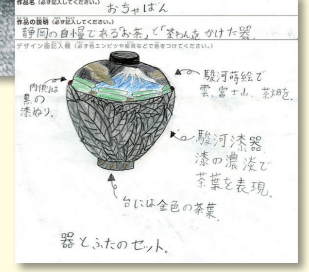 作品名(必ず記入してください。) おちゃばん
作品の説明(必ず記入してください。)
静岡の自慢である「お茶」と「茶わん」をかけた器。
デザイン画記入欄(必ず色エンピツや絵具などで色をつけてください。)
駿河蒔絵で
雲、富士山、茶畑を。
内側は
黒の
漆ぬり。
駿河漆器
漆の濃淡で
茶葉を表現。
台には金色の茶葉。
器とふたのセット。